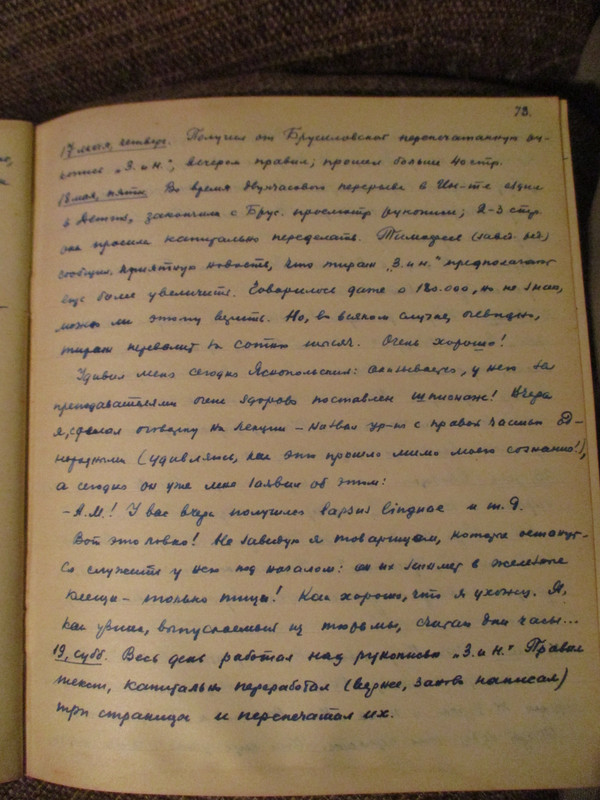 73.
17 мая, четверг. Получил от Брусиловской перепечатанную ру-
копись „З. и н.", вечером правил; прошел больше 40 стр.
18 мая, пятн. Во время двухчасового перерыва в Ин-те ездил
в Детгиз, закончил с Брус. просмотр рукописи; 2-3 стр.
она просила капитально переделать. Тимофеев
сообщил приятную новость, что тираж „З. и н." предполагают
еще более увеличить. Говорилось даже о 180.000, но не знаю,
можно ли этому верить. Но, во всяком случае, очевидно,
тираж перевалит за сотню тысяч. Очень хорошо!
Удивил меня сегодня Яснопольский: оказывается, у него за
преподавателями очень здорово поставлен шпионаж! Вчера
я, сделал оговорку на лекции – назвал ур-ие с правой частью
однородными (удивляюсь, как это прошло мимо моего сознания!),
а сегодня он уже мне заявил об этом:
– А.М.! У вас вчера получился lapsus linguae и т.д.
Вот это ловко! Не завидую я товарищам, которые останут-
ся служить у него под началом: он их зажмет в железные
клещи – только пищи! Как хорошо, что я ухожу. Я,
как узник, выпускаемый из тюрьмы, считаю дни часы...
19, субб. Весь день работал над рукописью „З. и н." Правил
текст, капитально переработал (вернее, заново написал)
три страницы и перепечатал их.